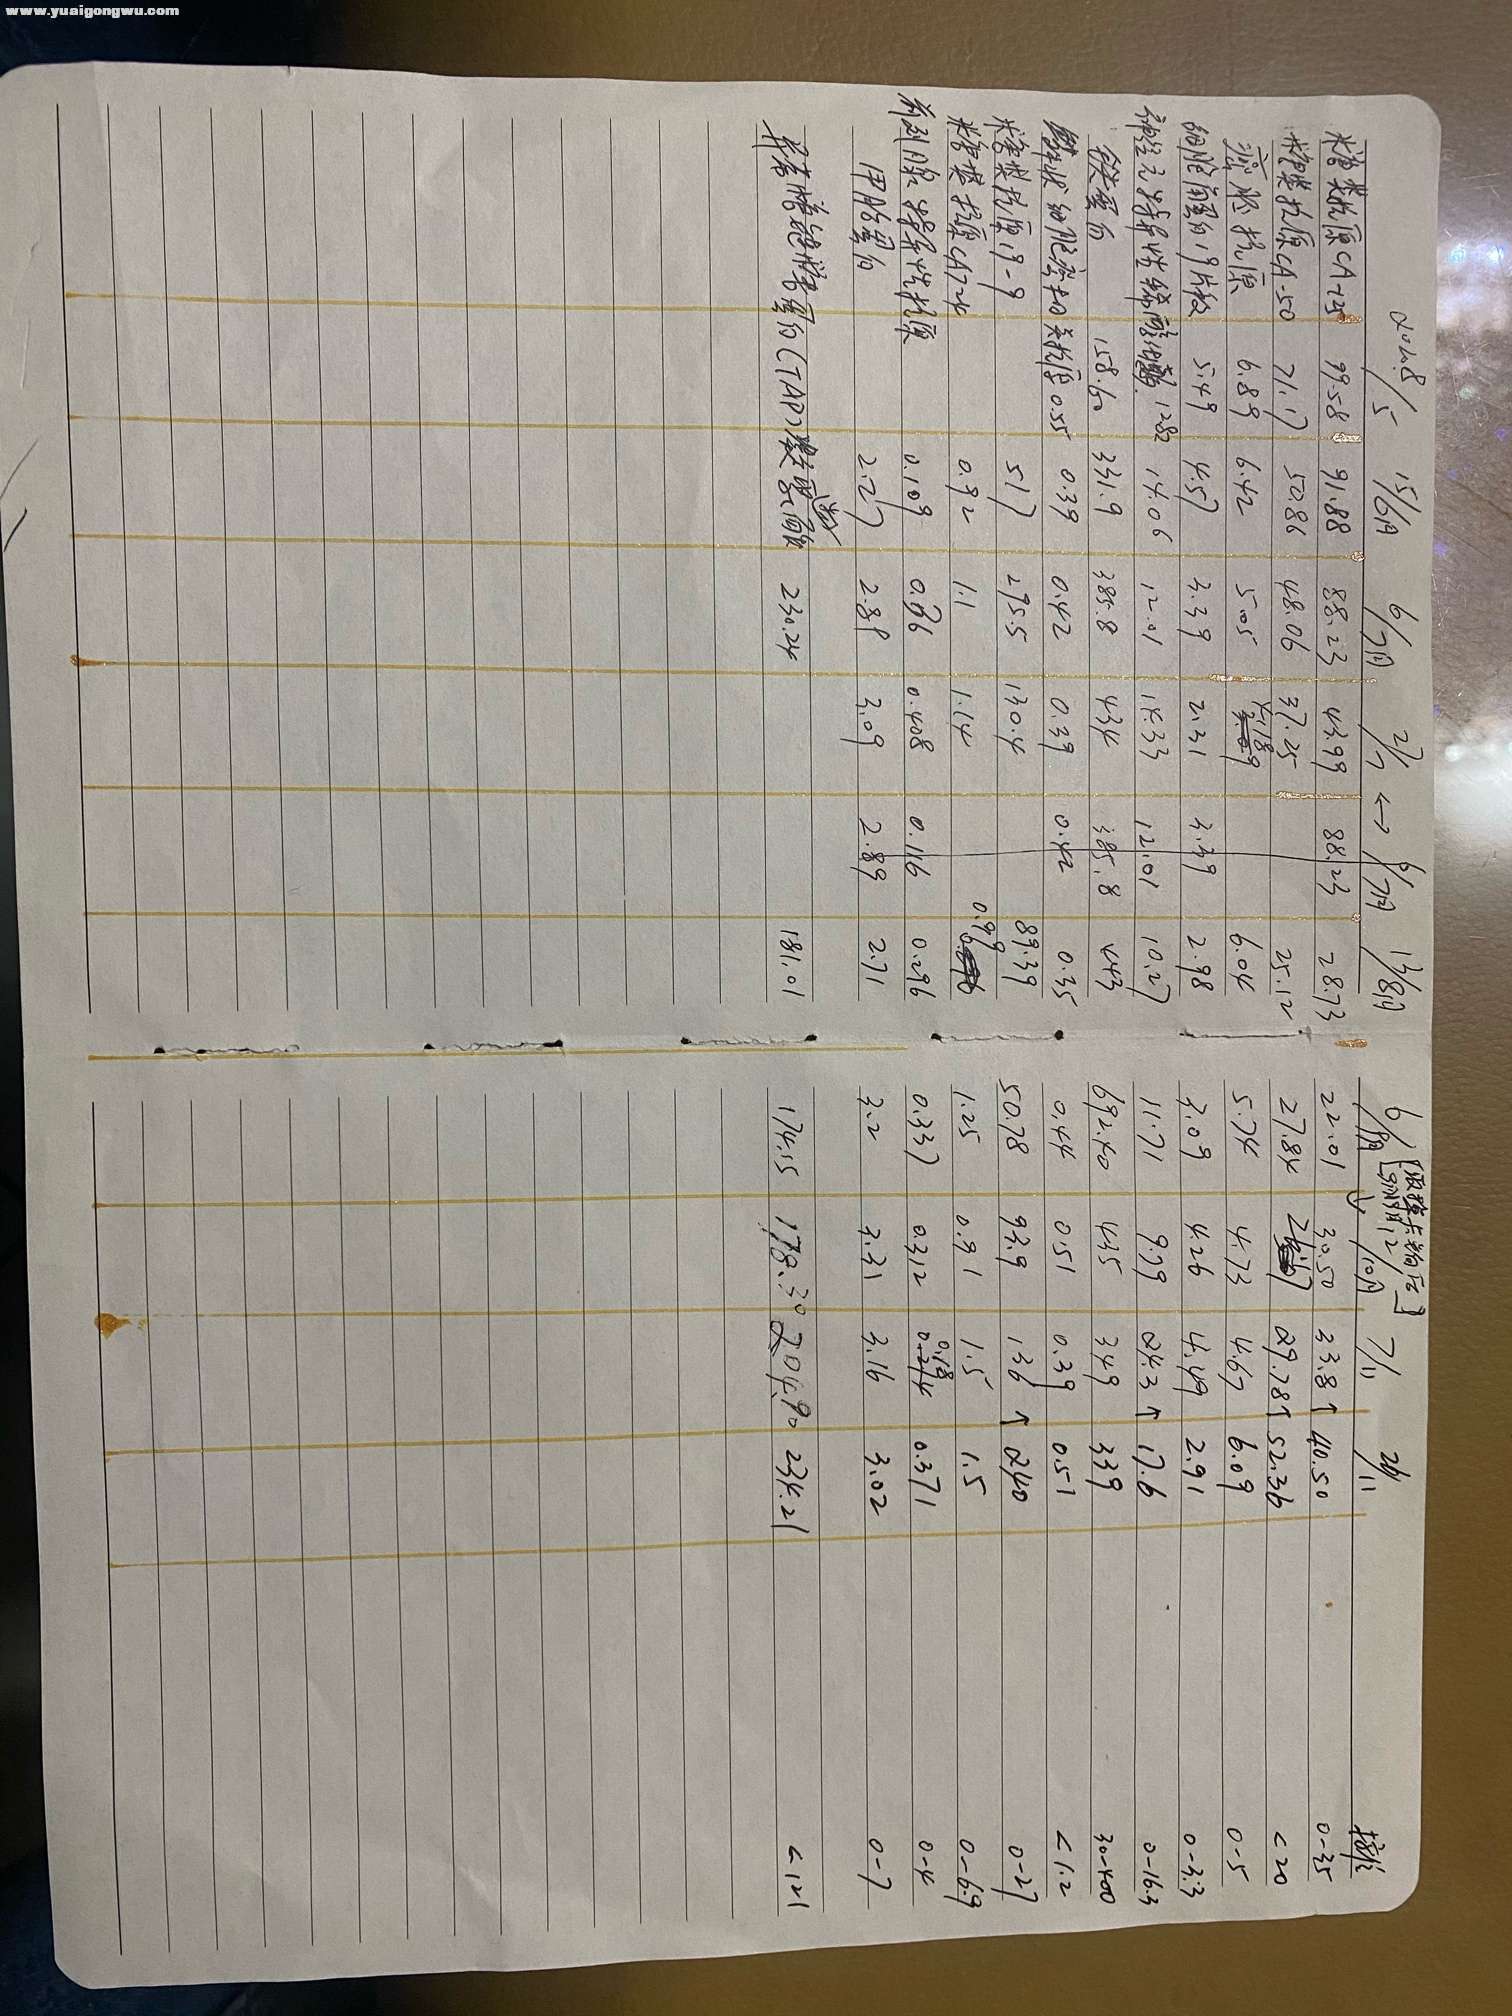 www.yuaigongwu.com
20208/5 15/6月 6/7月 2/7 ↔ 6/7月 13/8月 6/ 10月 7/11 26/11 标准
糖类抗原CA-125 99.58 91.88 88.23 43.99 88.23 28.73 22.01 30.50 33.8↑ 40.50 0-35
糖类抗原CA-50 71.17 50.86 48.06 37.25 25.12 27.84 29.78↑ 52.36 <20
癌胚抗原 6.89 6.42 5.05 6.04 5.74 4.73 4.67 6.09 0-5
细胞角蛋白19片段 5.49 4.57 3.39 2.31 3.39 2.98 3.09 4.26 4.49 2.91 0-3.3
神经元特异性 12.82 14.06 12.01 14.33 12.01 10.27 11.71 9.79 24.3↑ 17.6 0-16.3
铁蛋白 158.60 331.9 385.8 434 385.8 443 692.40 435 349 339 30-400
鳞状细胞癌相关抗原 0.55 0.39 0.42 0.39 0.42 0.35 0.44 0.51 0.39 0.51 <1.2
糖类抗原19-9 517 295.5 130.4 89.39 50.78 93.9 136↑ 240 0-27
糖类抗原CA724 0.92 1.1 1.14 0.99 1.25 0.91 1.5 1.5 0-6.9
前列腺特异性抗原 0.109 0.408 0.116 0.296 0.337 0.312 0.18 0.371 0-4
甲胎蛋白 2.27 2.89 3.09 2.89 2.71 3.2 3.31 3.16 3.02 0-7
异常糖链糖蛋白(TAP) 230.24 181.01 174.15 178.30 204.90 234.21 <121